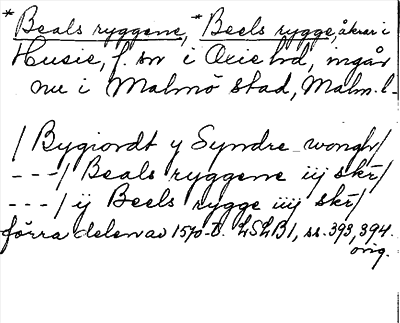 *Beals ryggene, *Beels rygge, åkrar i
Husie, f. sn i Oxie hd, ingår
nu i Malmö stad, Malm. l.
/ Bygiordt y Syndre wongh/
---/ Beals ryggene iij skr/
---/ ij Beels rygge iiij skr/
förra delen av 1570-t. LSLB1, ss. 393, 394.
orig.